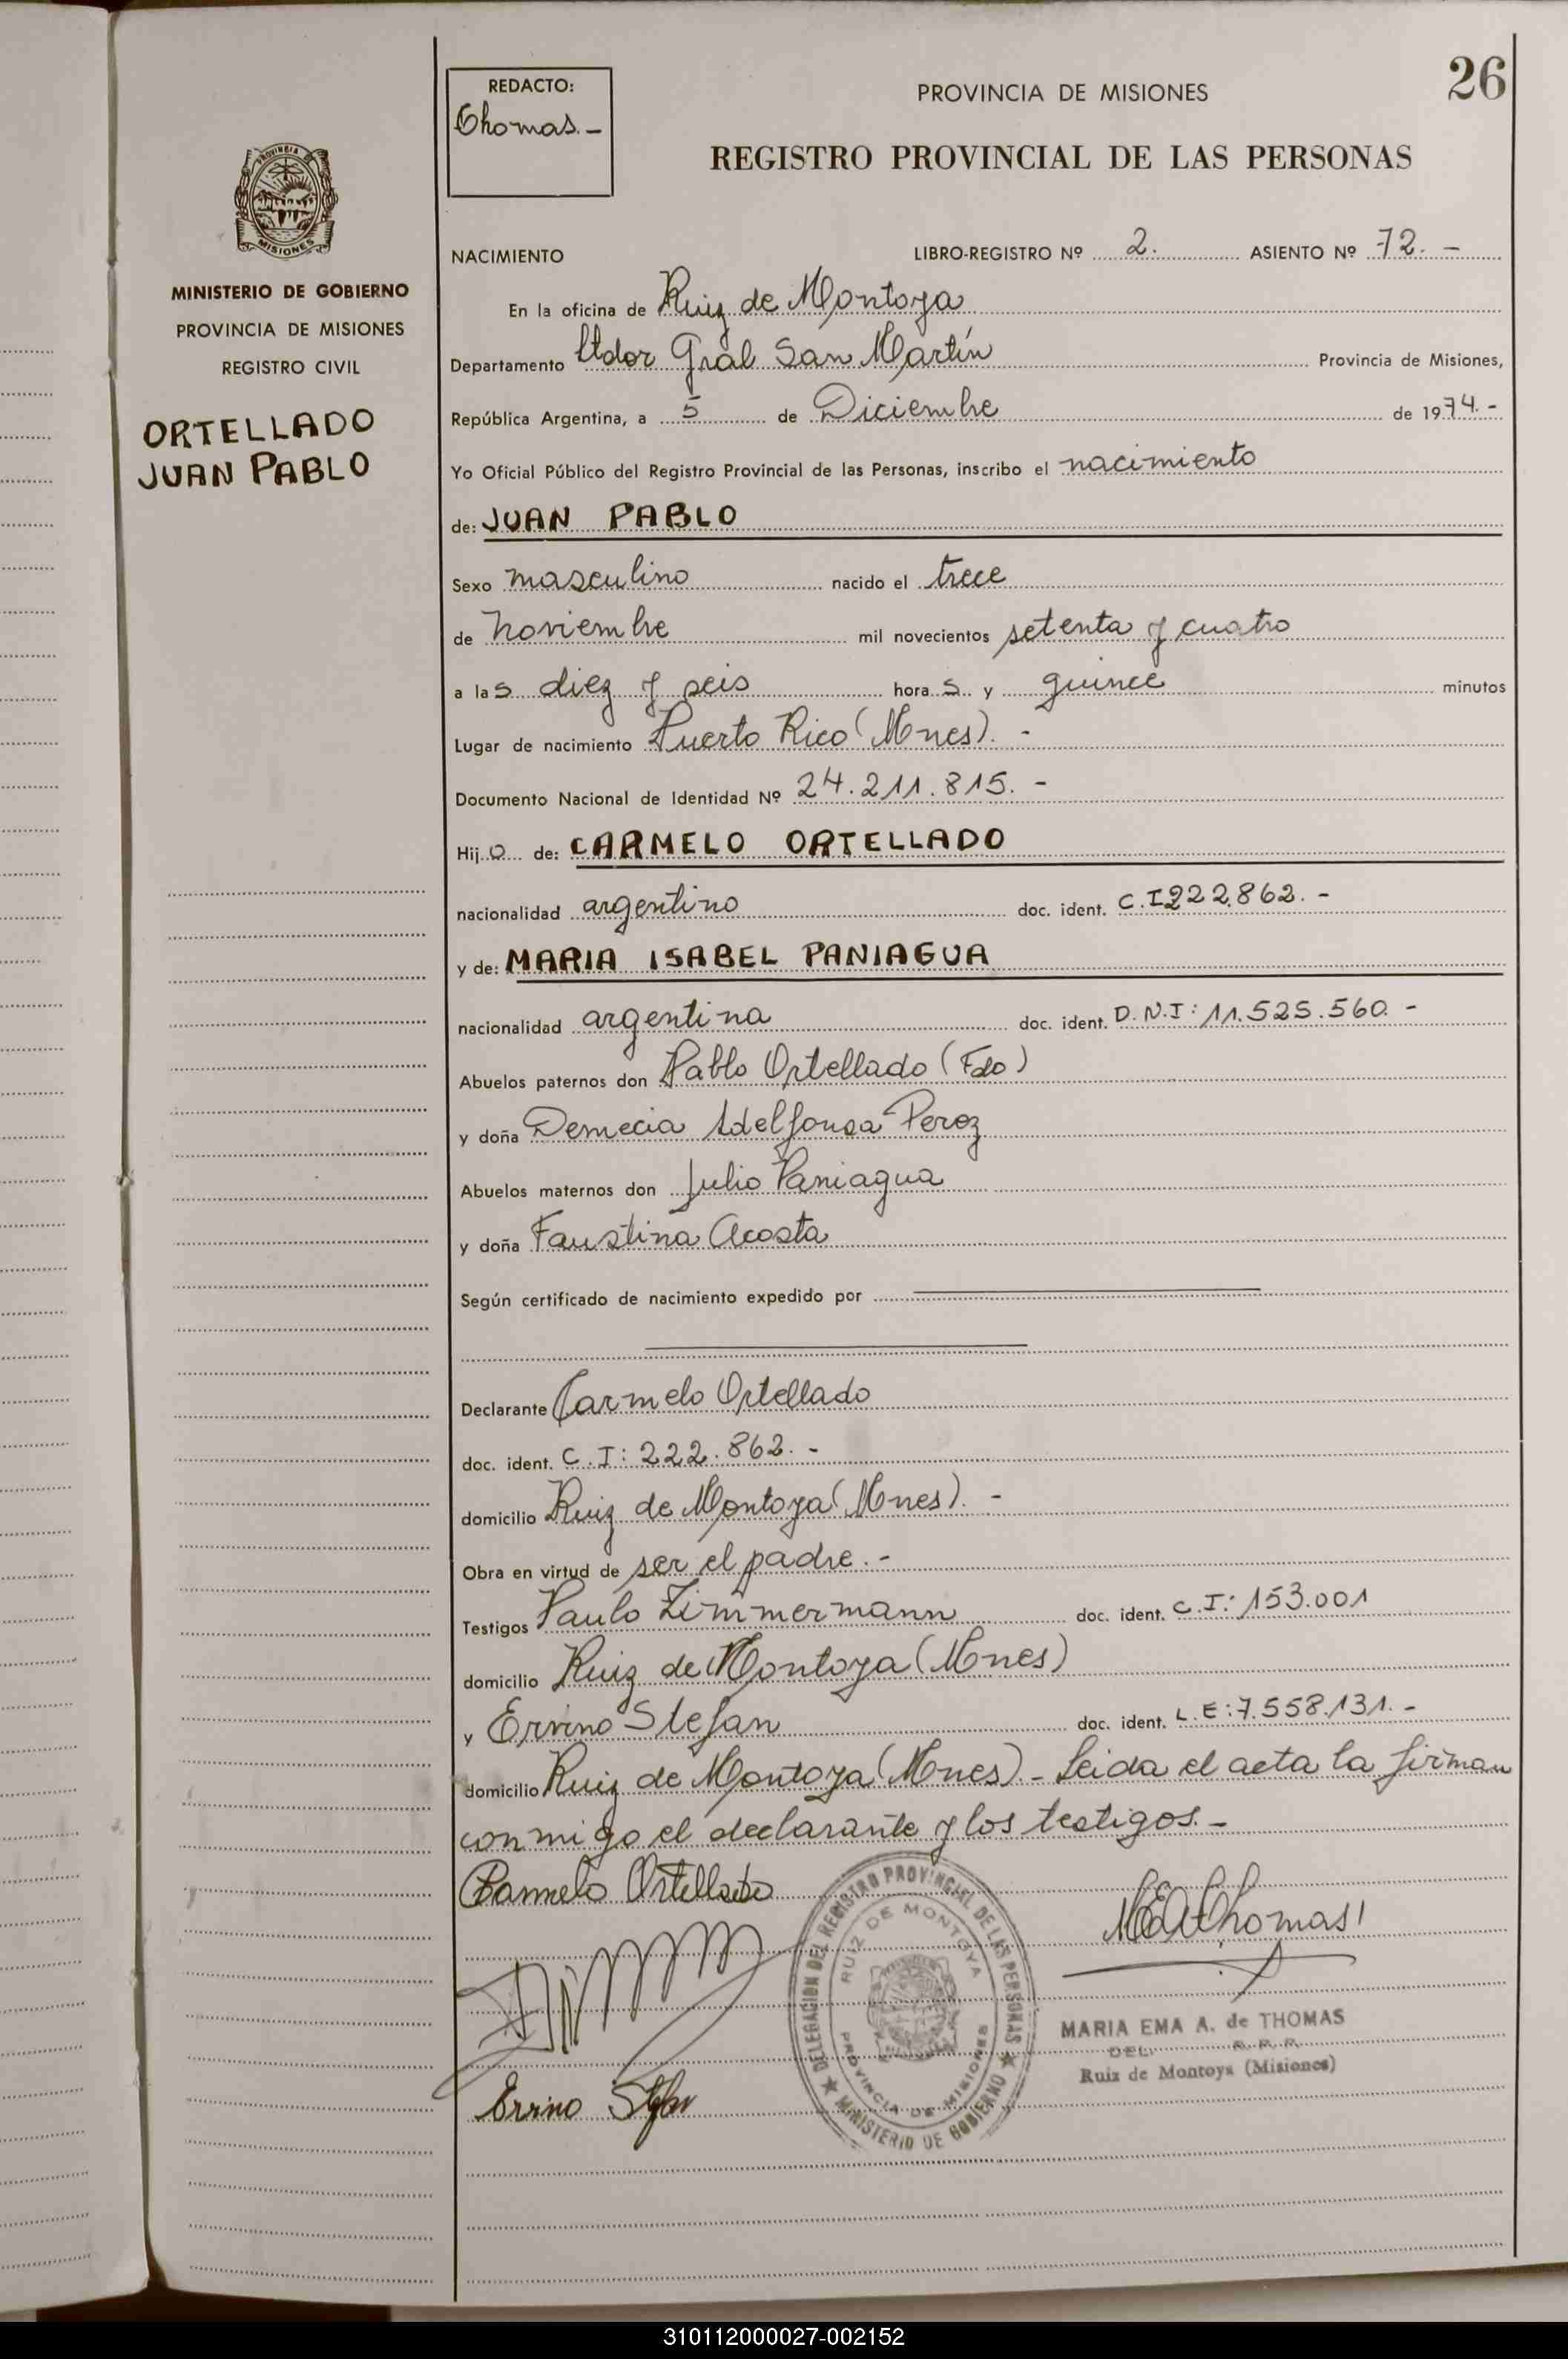 26
REDACTO:
Thomas.-
PROVINCIA DE MISIONES
REGISTRO PROVINCIAL DE LAS PERSONAS
PROVINCIA
MISIONES
MINISTERIO DE GOBIERNO
PROVINCIA DE MISIONES
REGISTRO CIVIL
ORTELLADO
JUAN PABLO
NACIMIENTO LIBRO-REGISTRO Nº 2. ASIENTO Nº 72. -
En la oficina de Ruiz de Montoya
Departamento Ltdor Gral San Martín Provincia de Misiones,
República Argentina, a 5 de Diciembre de 1974.-
Yo Oficial Público del Registro Provincial de las Personas, inscribo el nacimiento
de: JUAN PABLO
Sexo masculino nacido el trece
de noviembre mil novecientos setenta y cuatro
a las diez y seis horas y quince minutos
Lugar de nacimiento Puerto Rico (Mnes). -
Documento Nacional de Identidad Nº 24.211.815. -
Hijo de: CARMELO ORTELLADO
nacionalidad argentino doc. ident. C.I 222.862. -
y de: MARIA ISABEL PANIAGUA
nacionalidad argentina doc. ident. D.N.I: 11.525.560. -
Abuelos paternos don Pablo Ortellado (Fdo)
y doña Demecia Idelfonsa Peroz
Abuelos maternos don Julio Paniagua
y doña Faustina Acosta
Según certificado de nacimiento expedido por
Declarante Carmelo Ortellado
doc. ident. C.I: 222.862. -
domicilio Ruiz de Montoya (Mnes). -
Obra en virtud de ser el padre. -
Testigos Paulo Zimmermann doc. ident. C.I: 153.001
domicilio Ruiz de Montoya (Mnes)
y Ervino Stefan doc. ident. L.E: 7.558.131. -
domicilio Ruiz de Montoya (Mnes). - Leida el acta la firman
conmigo el declarante y los testigos. -
Carmelo Ortellado
MEAThomas
DELEGACION DEL REGISTRO PROVINCIAL DE LAS PERSONAS
RUIZ DE MONTOYA
PROVINCIA DE MISIONES
★ MINISTERIO DE GOBIERNO ★
MARIA EMA A. de THOMAS
DEL. R. P. P.
Ruiz de Montoya (Misiones)
Ervino Stefan
310112000027-002152